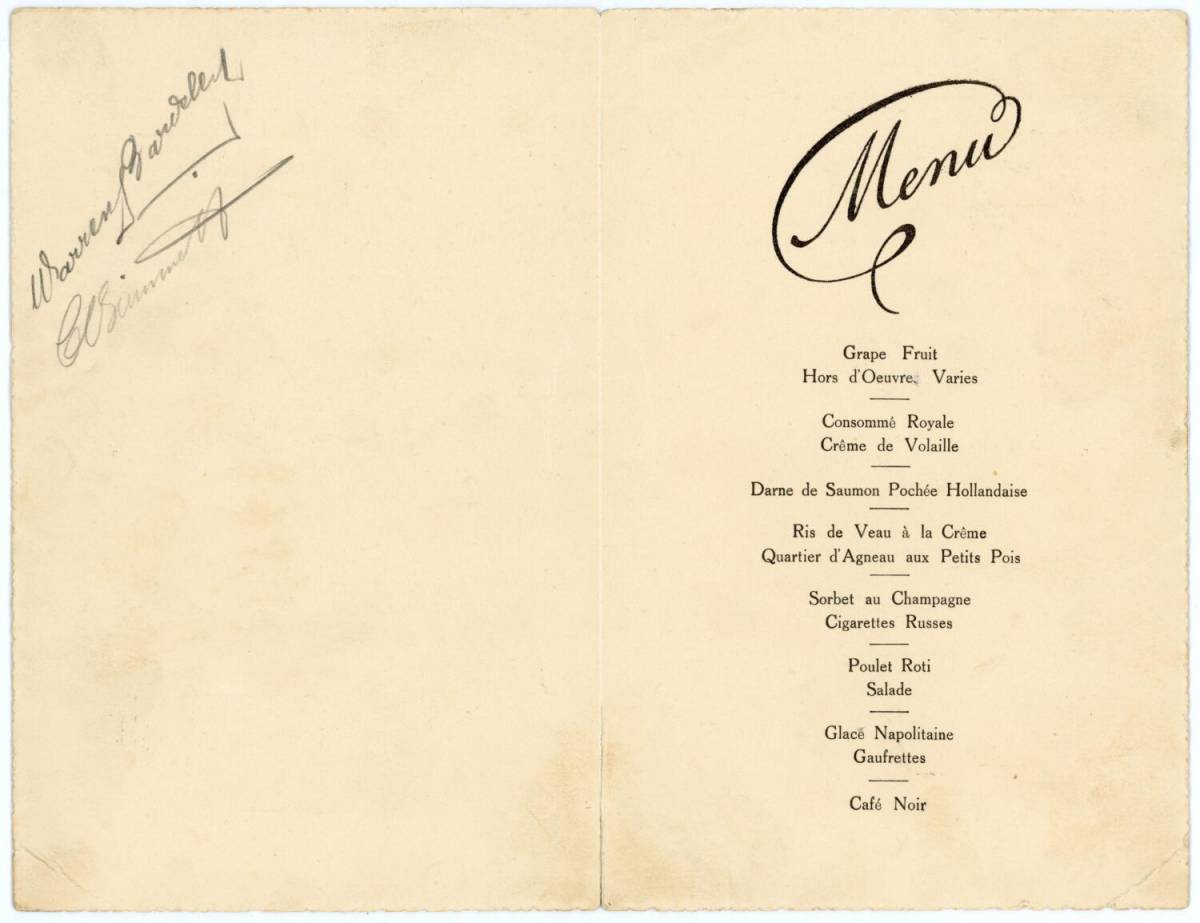 Warren Bardsley
Menu
Grape Fruit
Hors d'Oeuvre Varies
Consommé Royale
Crême de Volaille
Darne de Saumon Pochée Hollandaise
Ris de Veau à la Crême
Quartier d'Agneau aux Petits Pois
Sorbet au Champagne
Cigarettes Russes
Poulet Roti
Salade
Glacé Napolitaine
Gaufrettes
Café Noir